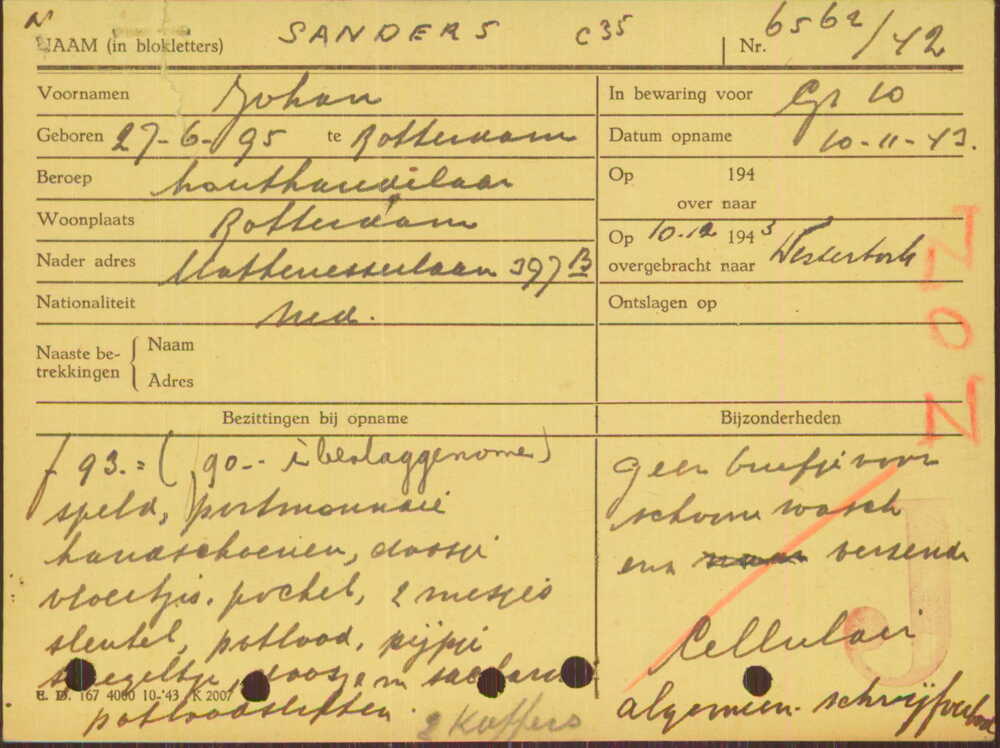 N
NAAM (in blokletters) SANDERS C35 Nr. 6562/42
Voornamen Johan
Geboren 27-6-95 te Rotterdam
Beroep houthandelaar
Woonplaats Rotterdam
Nader adres Mathenesserlaan 397 B
Nationaliteit Ned.
Naaste betrekkingen { Naam
Adres
In bewaring voor 10
Datum opname 10-11-43.
Op 194
over naar
Op 10.12 1943
overgebracht naar Westerbork
Ontslagen op
NOZ
Bezittingen bij opname
f 93.= ( 90.- i beslaggenomen)
speld, portmonnaie
handschoenen, doosje
vloeitjes, pochet, 2 mesjes
sleutel, potlood, pijpje
spiegeltje, doosje m
potloodstiften.
2 Koffers
E. D. 167 4000 10-'43 K 2007
Bijzonderheden
geen briefje voor
schoone wasch
enz naar verzenden
J
Cellulair
algemeen schrijfverbod